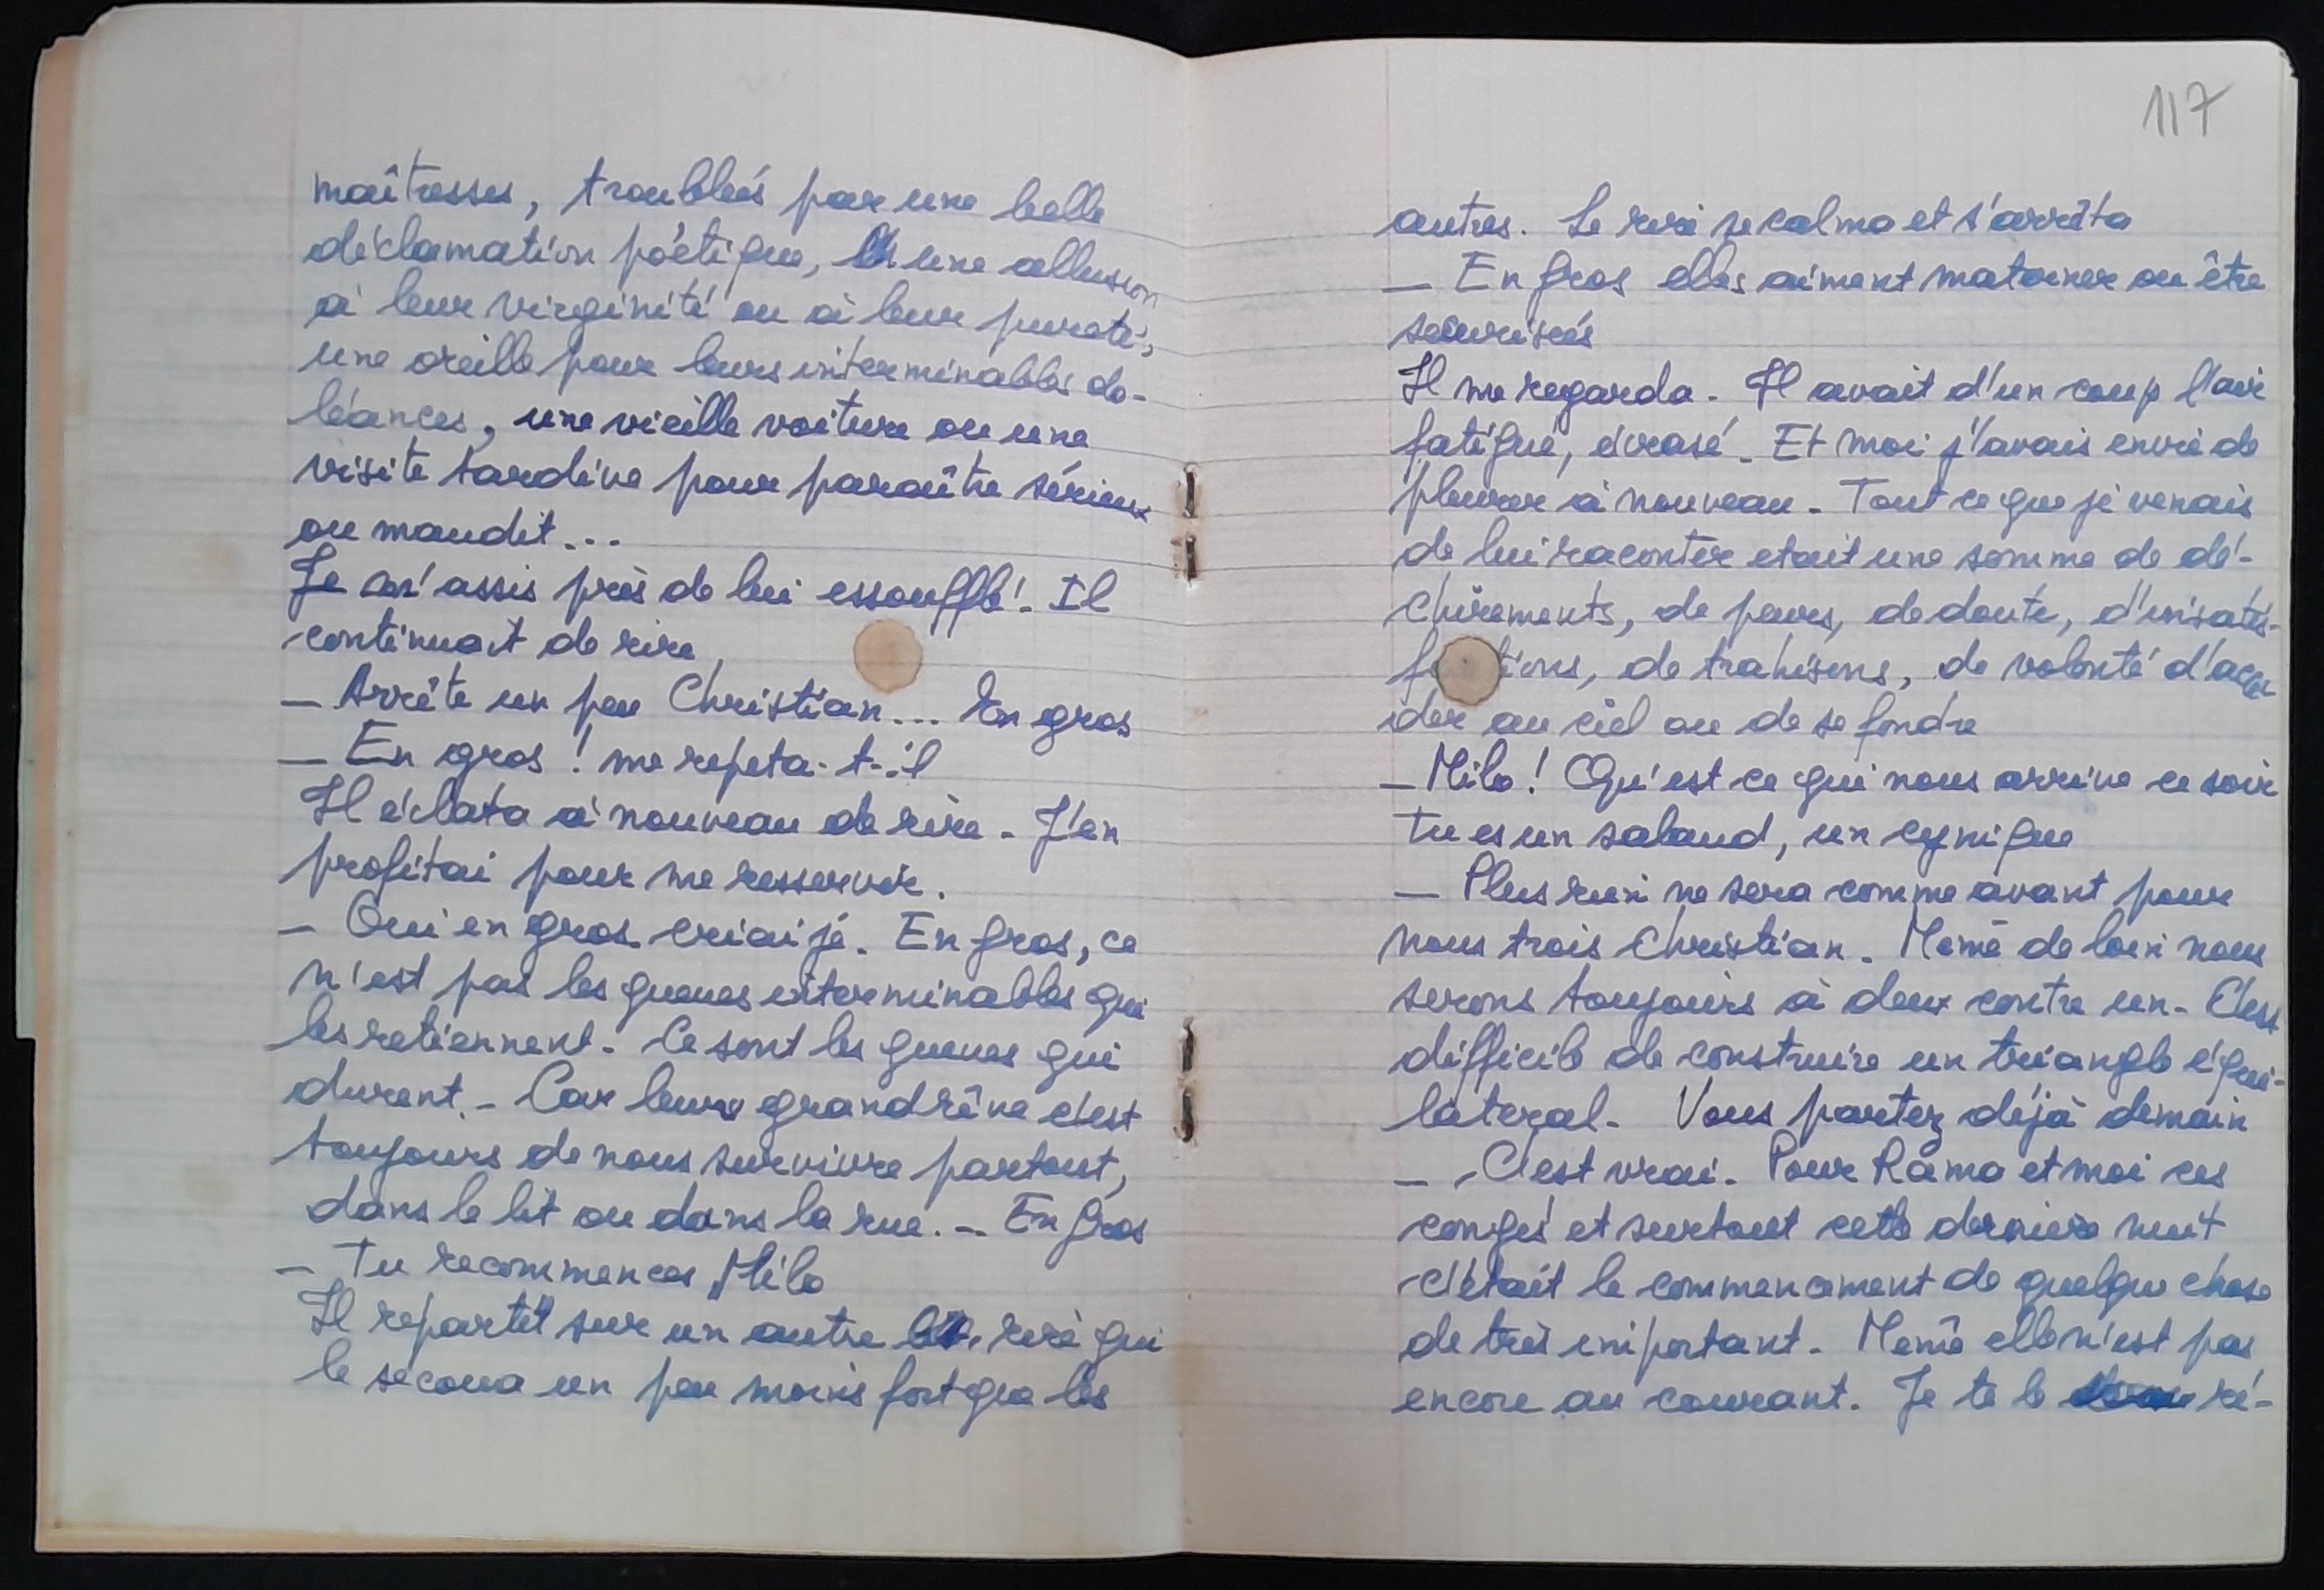 maîtresses, troublées par une belle
déclamation poétique, une allusion
à leur virginité ou à leur pureté,
une oreille pour leurs interminables do-
léances, une vieille voiture ou une
visite tardive pour paraître sérieux
ou maudit...
Je m'assis près de lui essoufflé. Il
continuait de rire
— Arrête un peu Christian... En gros
— En gros ! me repeta-t-il
Il éclata à nouveau de rire. J'en
profitai pour me resservir.
— Oui en gros criai je. En gros, ce
n'est pas les queues interminables qui
les retiennent. Ce sont les queues qui
durent. - Car leur grand rêve c'est
toujours de nous survivre partout,
dans le lit ou dans la rue. - En gros
— Tu recommences Milo
Il repartit sur un autre rire qui
le secoua un peu moins fort que les
117
autres. Le rire se calma et s'arrêta
— En gros elles aiment materner ou être
sécurisées
Il me regarda. Il avait d'un coup l'air
fatigué, écrasé. Et moi j'avais envie de
pleurer à nouveau. Tout ce que je venais
de lui raconter etait une somme de dé-
chirements, de peurs, de doute, d'insatis-
fa tions, de trahisons, de volonté d'accé
der au ciel ou de se fondre
— Milo ! Qu'est ce qui nous arrive ce soir
tu es un salaud, un cynique
— Plus rien ne sera comme avant pour
nous trois Christian. Même de loin nous
serons toujours à deux contre un. C'est
difficile de construire un triangle équi-
lateral. Vous partez déjà demain
— C'est vrai. Pour Rama et moi ces
congés et surtout cette derniere nuit
c'était le commencement de quelque chose
de très important. Même elle n'est pas
encore au courant. Je te le ré-